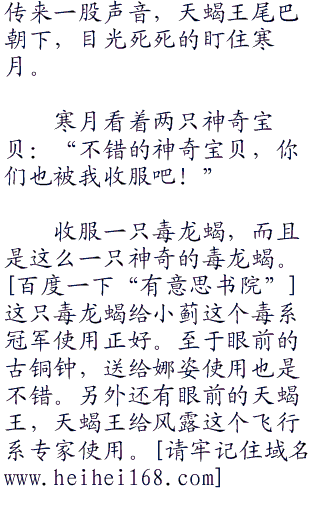 传来一股声音，天蝎王尾巴
朝下，目光死死的盯住寒
月。
寒月看着两只神奇宝
贝：“不错的神奇宝贝，你
们也被我收服吧！”
收服一只毒龙蝎，而且
是这么一只神奇的毒龙蝎。
[百度一下“有意思书院”]
这只毒龙蝎给小蓟这个毒系
冠军使用正好。至于眼前的
古铜钟，送给娜姿使用也是
不错。另外还有眼前的天蝎
王，天蝎王给风露这个飞行
系专家使用。[请牢记住域名
www.heihei168.com]